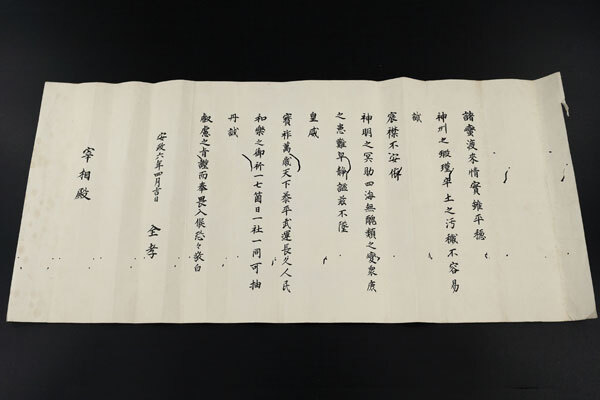 諸蠻渡來情實雖平穏
神州之瑕瑾率土之汚穢不容易
誠
宸襟不安
神明之冥助四海無醜類之變衆庶
之患難早静謐茲不墜
皇威
寳祚萬歳天下泰平武運長久人民
和樂之御祈一七箇日一社一同可抽
丹誠
叡慮之旨謹而奉畏入候恐々敬白
安政六年四月吉日
全孝
宰相殿